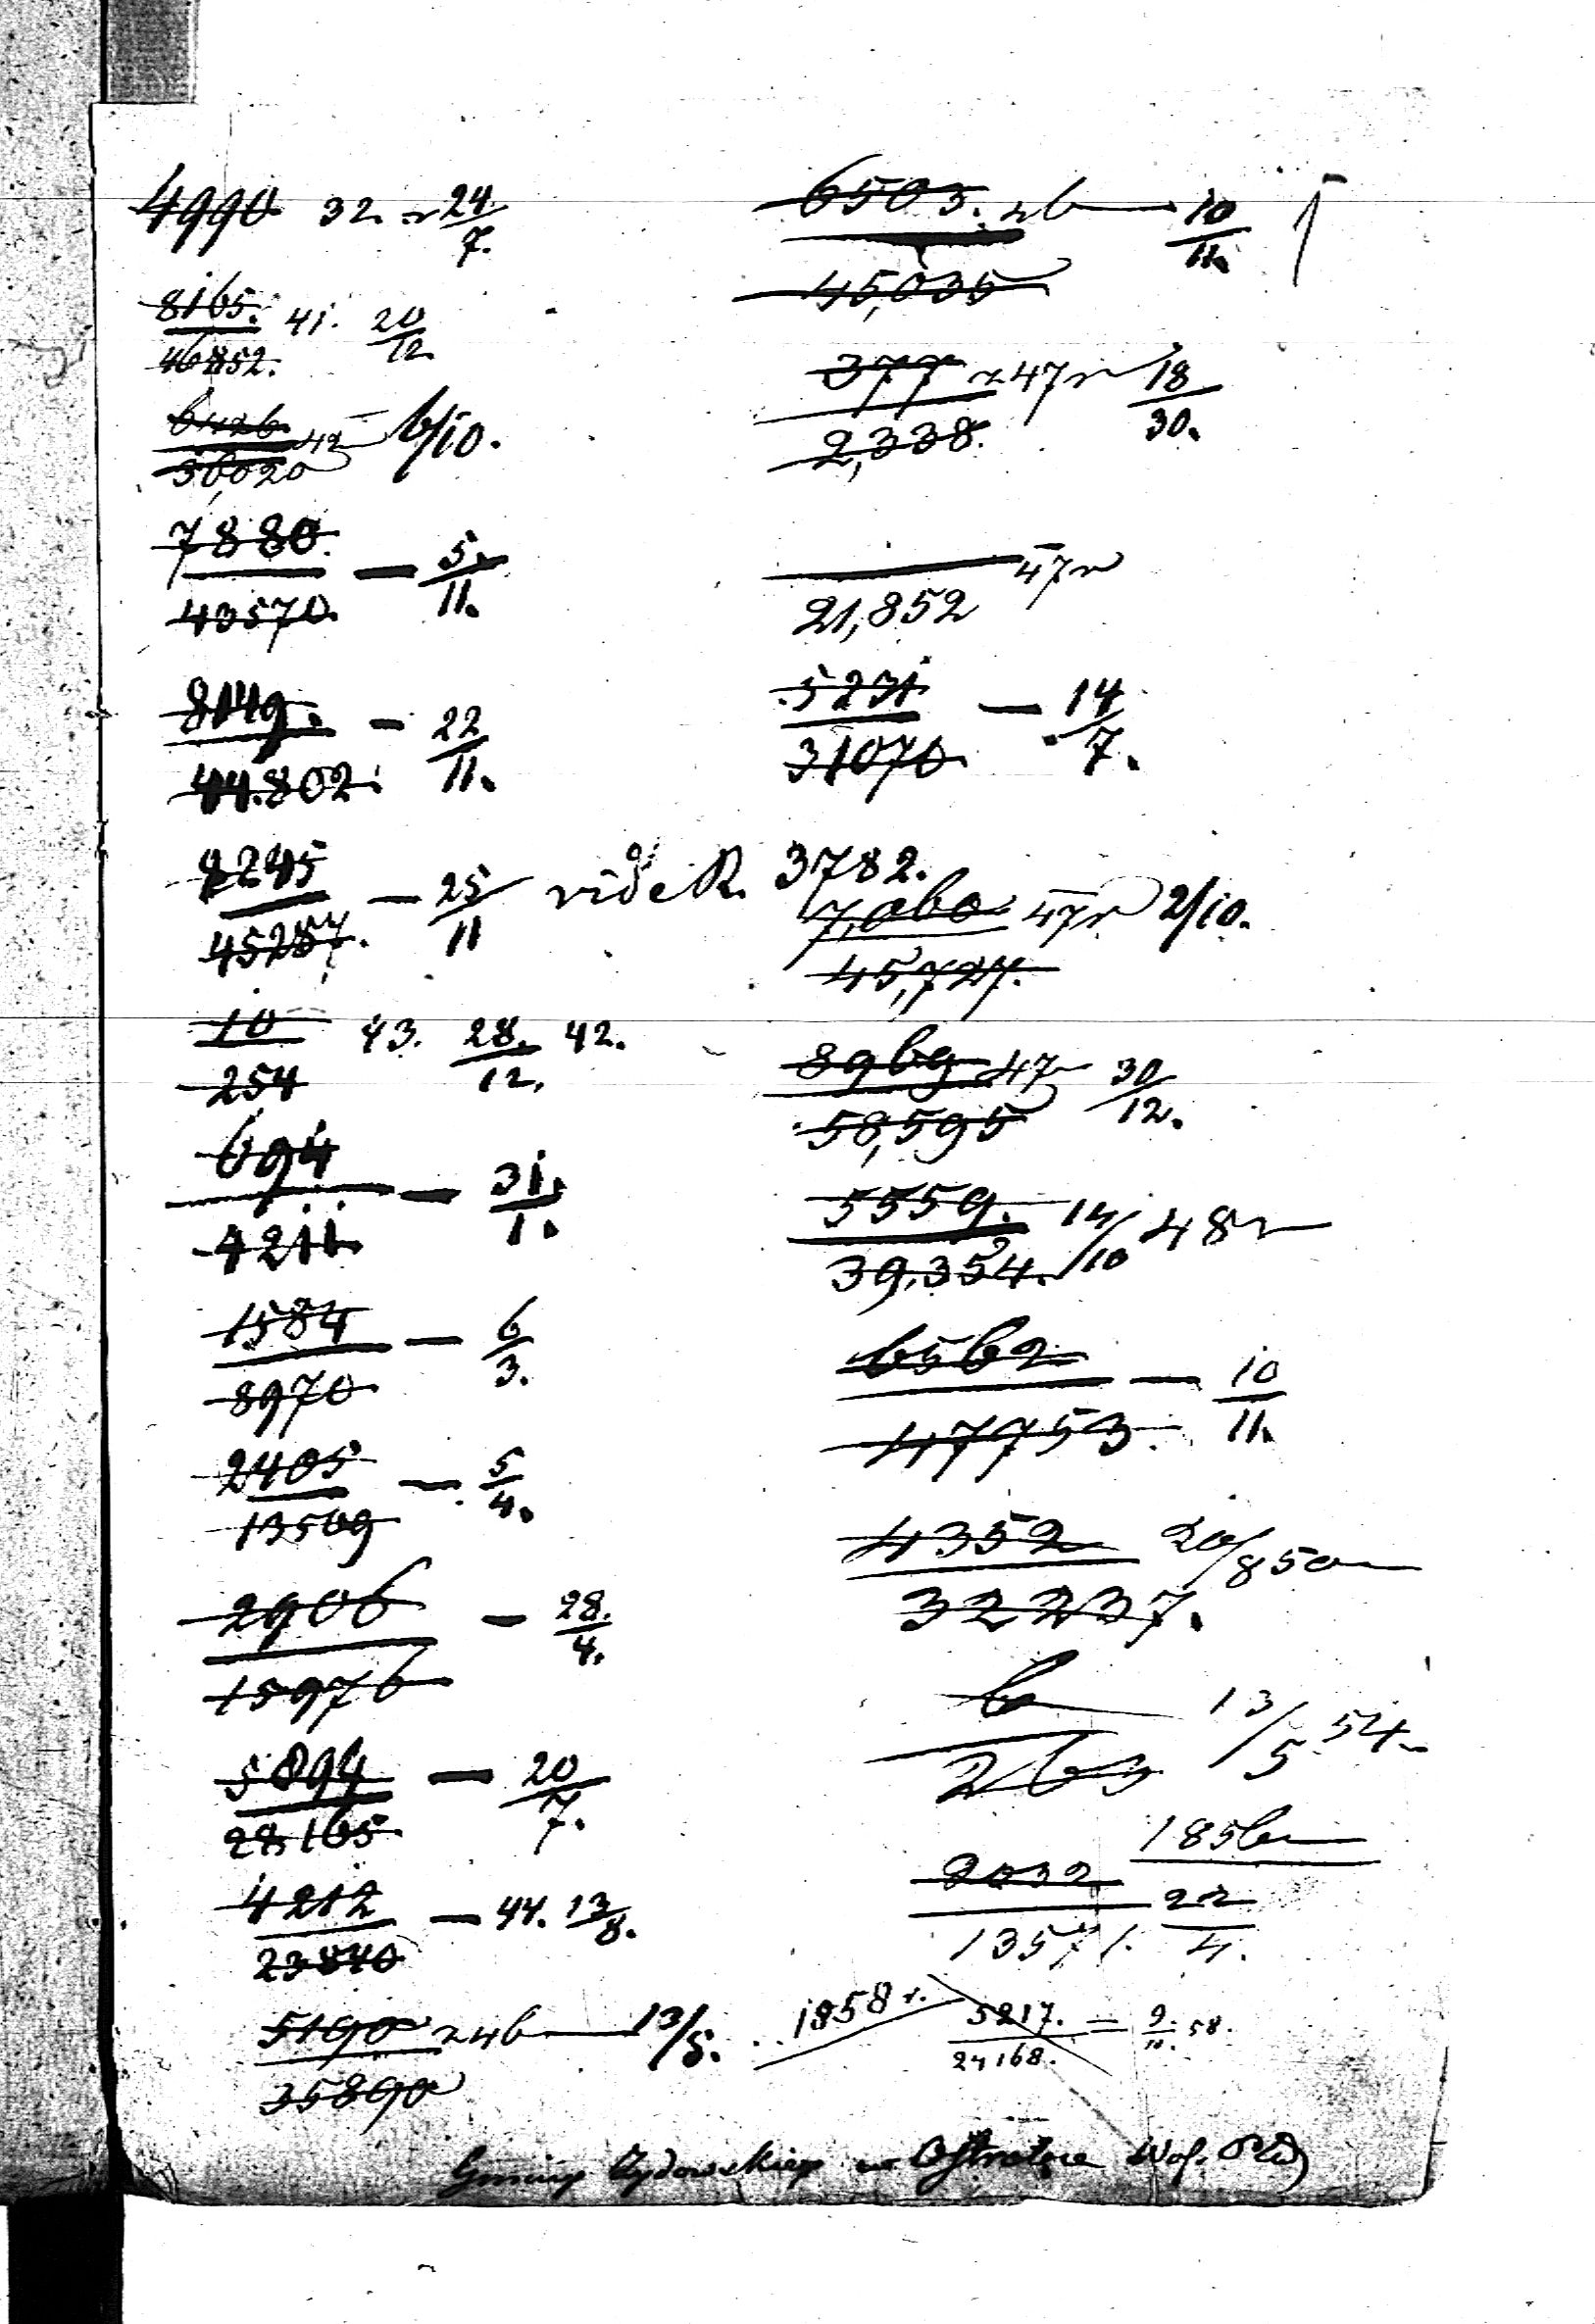 4990 32. r 24/7.
8165. 41. 20/12
46852.
6426. 42 6/10.
36,020
7880. — 5/11.
43570.
8149. — 22/11.
44.802.
8245 — 25/11 vide R. 3782.
45257.
10 43. 28./12. 42.
254
694 — 31./1.
4211.
1584 — 6/3.
8970
2405 — 5/4.
13569
2906 — 28./4.
15976
5094 — 20/7.
28165
4212 — 44. 13/8.
23840
5190 r 46 — 13/5.
35890
6503. r 6 — 10/11.
45,035
377 r 47 r 18/30.
2,338.
47 r
21,852
5231 — 14/7.
31070
7,060 47 r 2/10.
45,727.
8969 47 30/12.
58,595
5559. 14/10 48 r
39,354.
6562 — 10/11.
47753.
4352 20/8 50
32237.
6 13/5 54
263
1856
2032 22/4.
13571.
1858 r. 5217. = 9/11. 58.
24168.
Gminy Żydowskiey w Ostrołęce